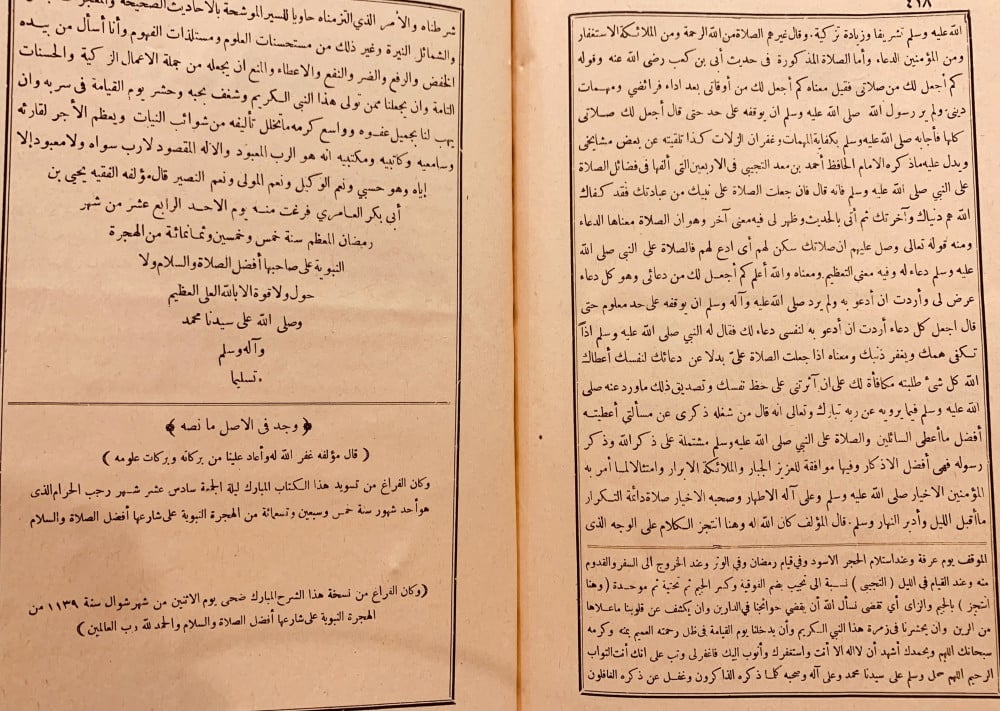 ٤١٨
الله عليه وسلم تشريفا وزيادة تركية. وقال غيرهم الصلاة من الله الرحمة ومن الملائكة الاستغفار
ومن المؤمنين الدعاء وأما الصلاة المذكورة فى حديث أبى بن كعب رضى الله عنه وقوله
كم أجعل لك من صلاتى فقيل معناه كم أجعل لك من أوقاتى بعد اداء فرائضى ومهمات
دينى. ولم ير رسول الله صلى الله عليه وسلم ان يوقفه على حد حتى قال أجعل لك صلاتى
كلها فأجابه صلى الله عليه وسلم بكفاية المهمات وغفران الزلات كذا تلقيته عن بعض مشايخى
ويدل عليه ماذكره الامام الحافظ أحمد بن معد التجيبى فى الاربعين التى ألفها فى فضائل الصلاة
على النبى صلى الله عليه وسلم فانه قال فان جعلت الصلاة على نبيك من عبادتك فقد كفاك
الله هم دنياك وآخرتك ثم أتى بالحديث وظهر لى فيه معنى آخر وهو ان الصلاة معناها الدعاء
ومنه قوله تعالى وصل عليهم ان صلاتك سكن لهم أى ادع لهم فالصلاة على النبى صلى الله
عليه وسلم دعاء له وفيه معنى التعظيم. ومعناه والله أعلم كم أجعل لك من دعائى وهو كل دعاء
عرض لى وأردت ان أدعو به ولم يرد صلى الله عليه وآله وسلم ان يوقفه على حد معلوم حتى
قال اجعل كل دعاء أردت ان أدعو به لنفسى دعاء لك فقال له النبى صلى الله عليه وسلم اذاً
تكفى همك ويغفر ذنبك ومعناه اذا جعلت الصلاة علىّ بدلا عن دعائك لنفسك أعطاك
الله كل شئ طلبته مكافأة لك على ان آثرتنى على حظ نفسك وتصديق ذلك ماورد عنه صلى
الله عليه وسلم فيما يرويه عن ربه تبارك وتعالى انه قال من شغله ذكرى عن مسألتى أعطيته
أفضل ماأعطى السائلين والصلاة على النبى صلى الله عليه وسلم مشتملة على ذكر الله وذكر
رسوله فهى أفضل الاذكار وفيها موافقة للعزيز الجبار والملائكة الابرار وامتثالا لما أمر به
المؤمنين الاخيار صلى الله عليه وسلم وعلى آله الاطهار وصحبه الاخيار صلاة دائمة التكرار
ماأقبل الليل وأدبر النهار وسلم. قال المؤلف كان الله له وهنا انتجز الكلام على الوجه الذى
الموقف يوم عرفة وعند استلام الحجر الاسود وفى قيام رمضان وفى الوتر وعند الخروج الى السفر والقدوم
منه وعند القيام فى الليل (التجيبى) نسبة الى تجيب بضم الفوقية وكسر الجيم ثم تحتية ثم موحدة (وهنا
انتجز) بالجيم والزاى أى تقضى نسأل الله أن يقضى حوائجنا فى الدارين وان يكشف عن قلوبنا ماعلاها
من الرين وان يحشرنا فى زمرة هذا النبى الكريم وأن يدخلنا يوم القيامة فى ظل رحمته العميم بمنه وكرمه
سبحانك اللهم وبحمدك أشهد أن لااله الا أنت واستغفرك وأتوب اليك فاغفر لى وتب على انك أنت التواب
الرحيم اللهم صل وسلم على سيدنا محمد وعلى آله وصحبه كلما ذكره الذاكرون وغفل عن ذكره الغافلون
شرطناه والأمر الذى التزمناه حاويا للسير الموشحة بالأحاديث الصحيحة
والشمائل النيرة وغير ذلك من مستحسنات العلوم ومستلذات الفهوم وأنا أسأل من بيده
الخفض والرفع والضر والنفع والاعطاء والمنع ان يجعله من جملة الاعمال الزكية والحسنات
التامة وان يجعلنا ممن تولى هذا النبى الكريم وشغف بحبه وحشر يوم القيامة فى سربه وان
يهب لنا بجميل عفوه وواسع كرمه ماتخلل تأليفه من شوائب النيات ويعظم الأجر لقارئه
وسامعيه وكاتبيه ومكتبيه انه هو الرب المعبود والاله المقصود لارب سواه ولا معبود إلا
إياه وهو حسبى ونعم الوكيل ونعم المولى ونعم النصير قال مؤلفه الفقيه يحيى بن
أبى بكر العامرى فرغت منه يوم الاحد الرابع عشر من شهر
رمضان المعظم سنة خمس وخمسين وثمانمائة من الهجرة
النبوية على صاحبها أفضل الصلاة والسلام ولا
حول ولا قوة الا بالله العلى العظيم
وصلى الله على سيدنا محمد
وآله وسلم
تسليما.
﴿ وجد فى الاصل ما نصه ﴾
( قال مؤلفه غفر الله له وأعاد علينا من بركاته وبركات علومه )
وكان الفراغ من تسويد هذا الكتاب المبارك ليلة الجمعة سادس عشر شهر رجب الحرام الذى
هو أحد شهور سنة خمس وسبعين وتسعمائة من الهجرة النبوية على شارعها أفضل الصلاة والسلام
(وكان الفراغ من نسخة هذا الشرح المبارك ضحى يوم الاثنين من شهر شوال سنة ١١٣٩ من
الهجرة النبوية على شارعها أفضل الصلاة والسلام والحمد لله رب العالمين )